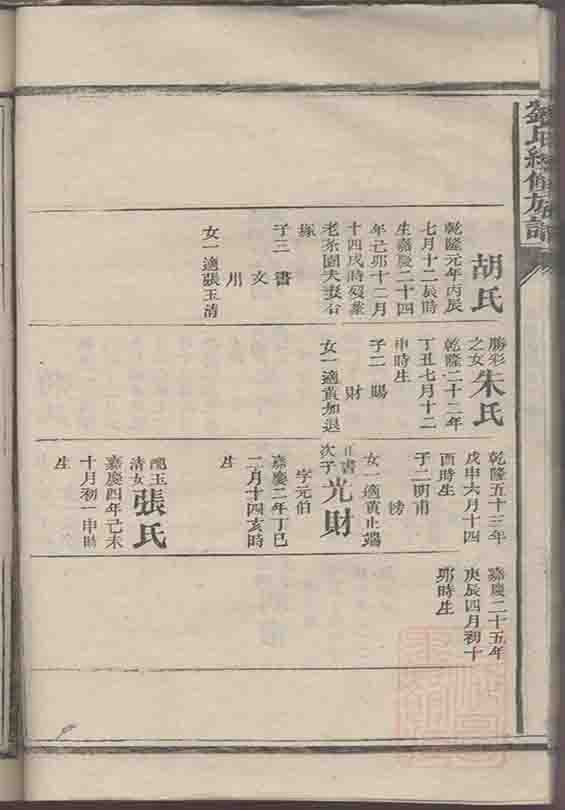 胡氏
乾隆元年丙辰
七月十二辰時
生嘉慶二十四
年己卯十二月
十四戌時歿葬
老茶園夫妻合
塚
子三 書
文
用
女一適張玉清
勝彩
之女
朱氏
乾隆二十二年
丁丑七月十二
申時生
子二 賜
財
女一適黃加退
乾隆五十三年
戊申六月十四
酉時生
子二明甫
榜
女一適黃止端
正書
次子
光財
字元伯
嘉慶二年丁巳
二月十四亥時
生
玉
清女
張氏
嘉慶四年己未
十月初一申時
生
嘉慶二十五年
庚辰四月初十
卯時生